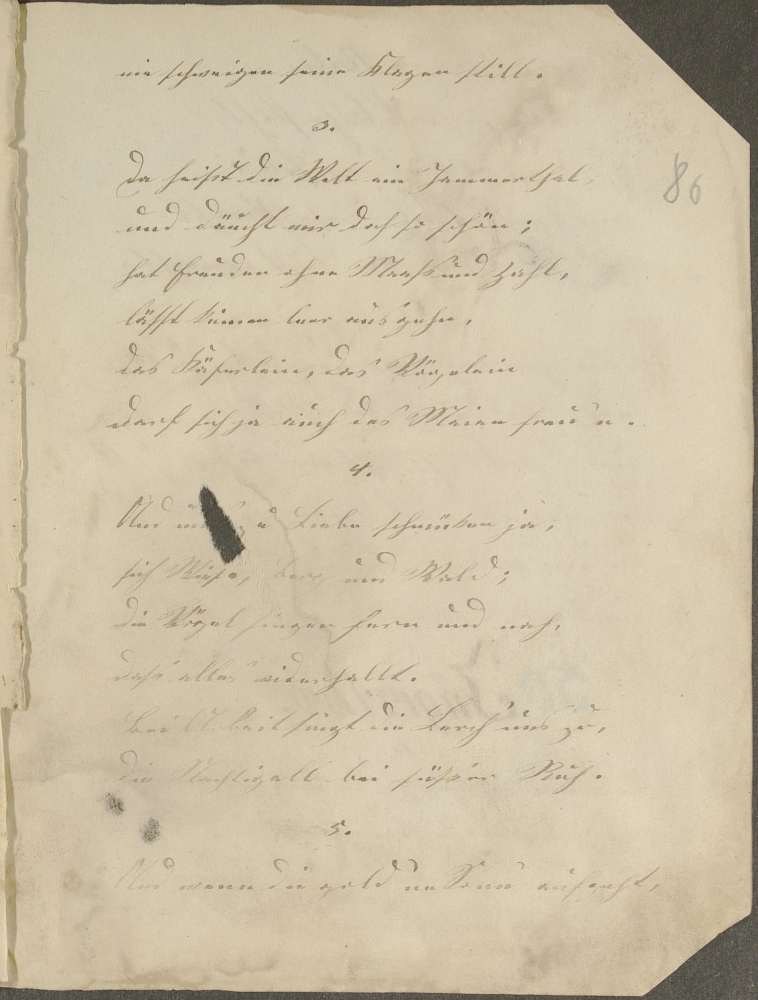 nie schweigen seine Klagen still.
3.
Da heißt die Welt ein Jammerthal,
86
und däucht mir doch so schön;
hat Freuden ohne Maaß und Zahl,
läßt keinen leer ausgehn,
das Käferlein, das Vögelein
darf sich ja auch des Maien freu'n.
4.
Und uns zu Liebe schmücken ja,
sich Wiese, Berg und Wald;
die Vögel singen fern und nah,
daß alles widerhallt.
Bei Arbeit singt die Lerch' uns zu,
die Nachtigall bei süßer Ruh.
5.
Und wenn die gold'ne Sonn' aufgeht,